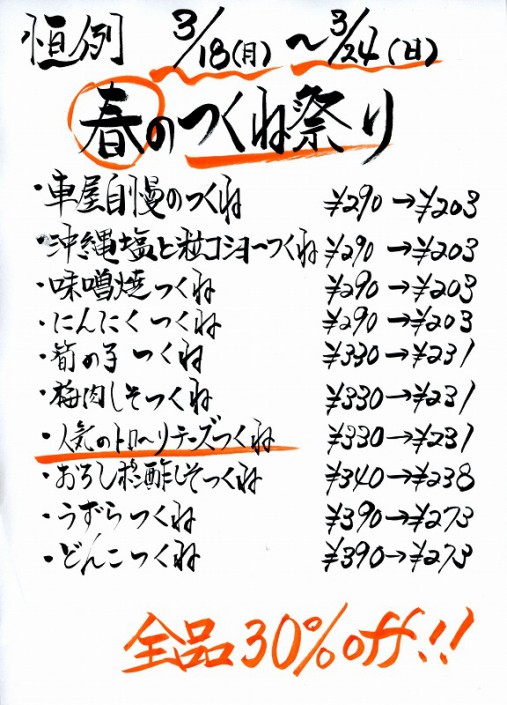 恒例 3/18(月)～3/24(日)
春のつくね祭り
・車屋自慢のつくね ¥290→¥203
・沖縄塩と粒コショーつくね ¥290→¥203
・味噌焼つくね ¥290→¥203
・にんにくつくね ¥290→¥203
・筍の子つくね ¥330→¥231
・梅肉しそつくね ¥330→¥231
・人気のトローリチーズつくね ¥330→¥231
・おろしポン酢しそつくね ¥340→¥238
・うずらつくね ¥390→¥273
・どんこつくね ¥390→¥273
全品30%off!!